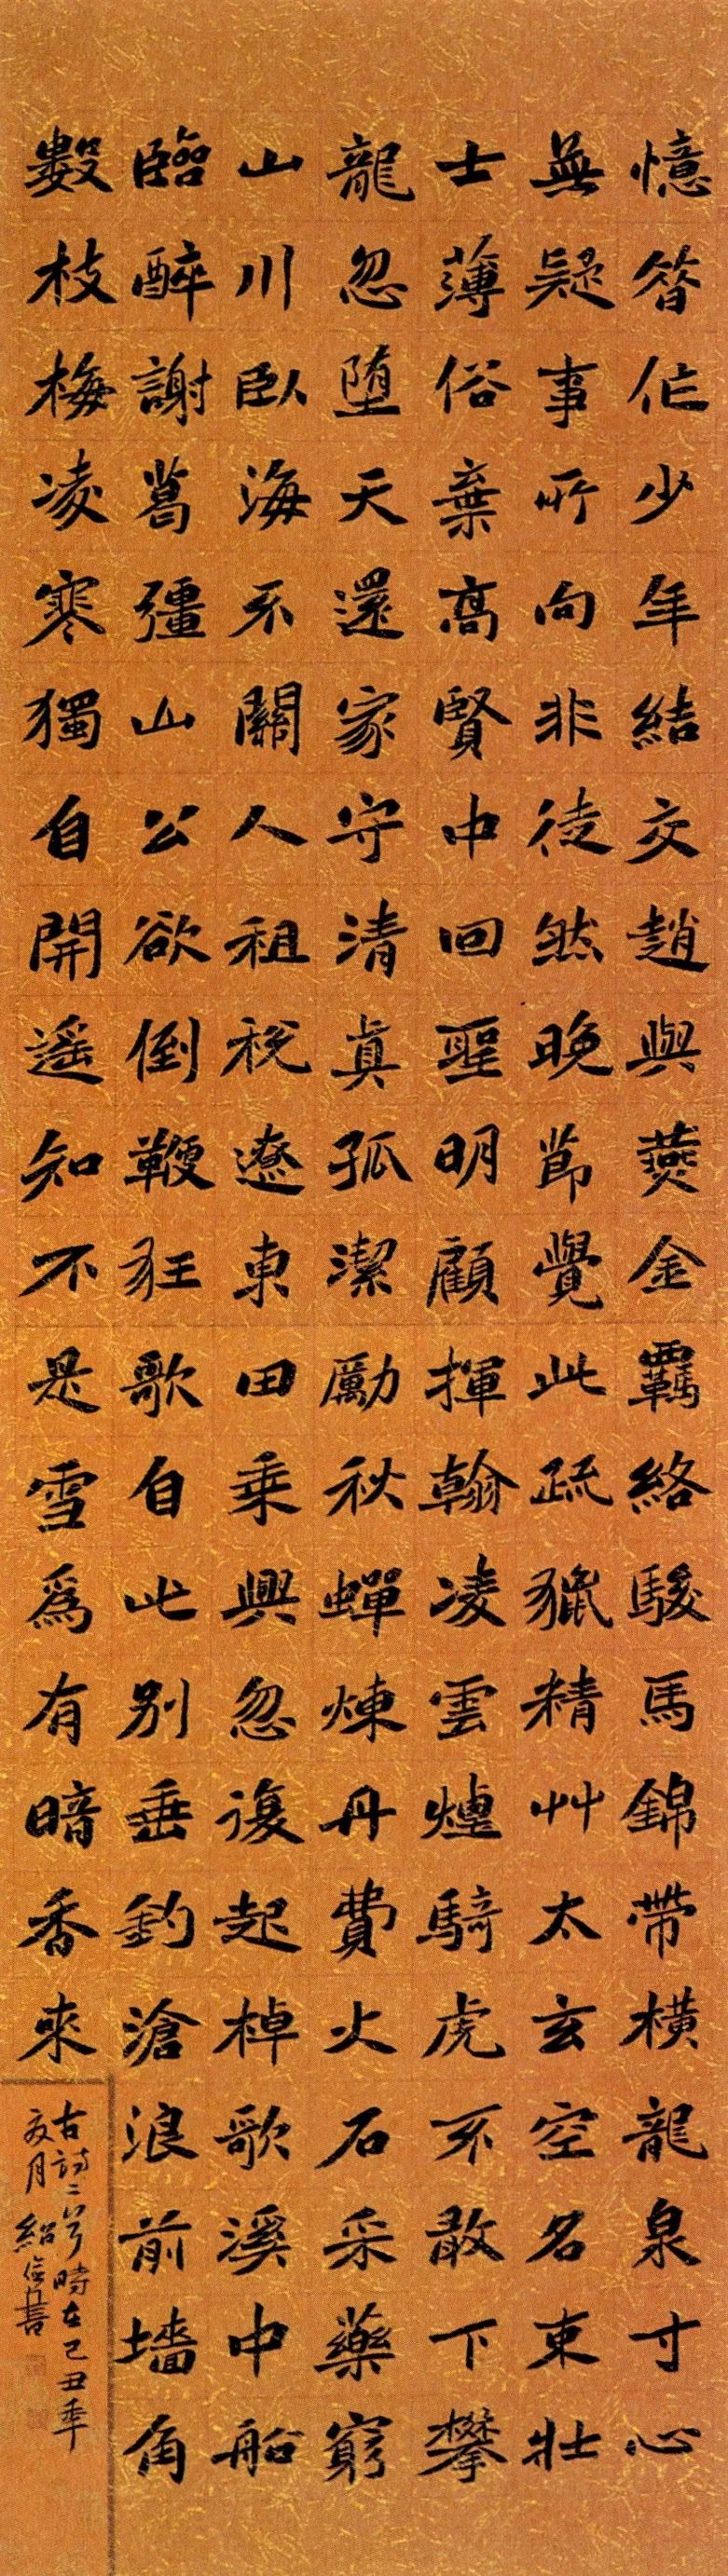 憶昔作少年結交趙與燕金羈絡駿馬錦帶橫龍泉寸心
無疑事所向非徒然晚節覺此疏獵精艸太玄空名束壯
士薄俗棄高賢中回聖明顧揮翰凌雲煙騎虎不敢下攀
龍忽墮天還家守清真孤潔勵秋蟬煉丹費火石采藥窮
山川臥海不關人租稅遼東田乘興忽復起棹歌溪中船
臨醉謝葛彊山公欲倒鞭狂歌自此別垂釣滄浪前墻角
數枝梅凌寒獨自開遙知不是雪為有暗香來
古詩二首時在己丑年
夜月紹儉書